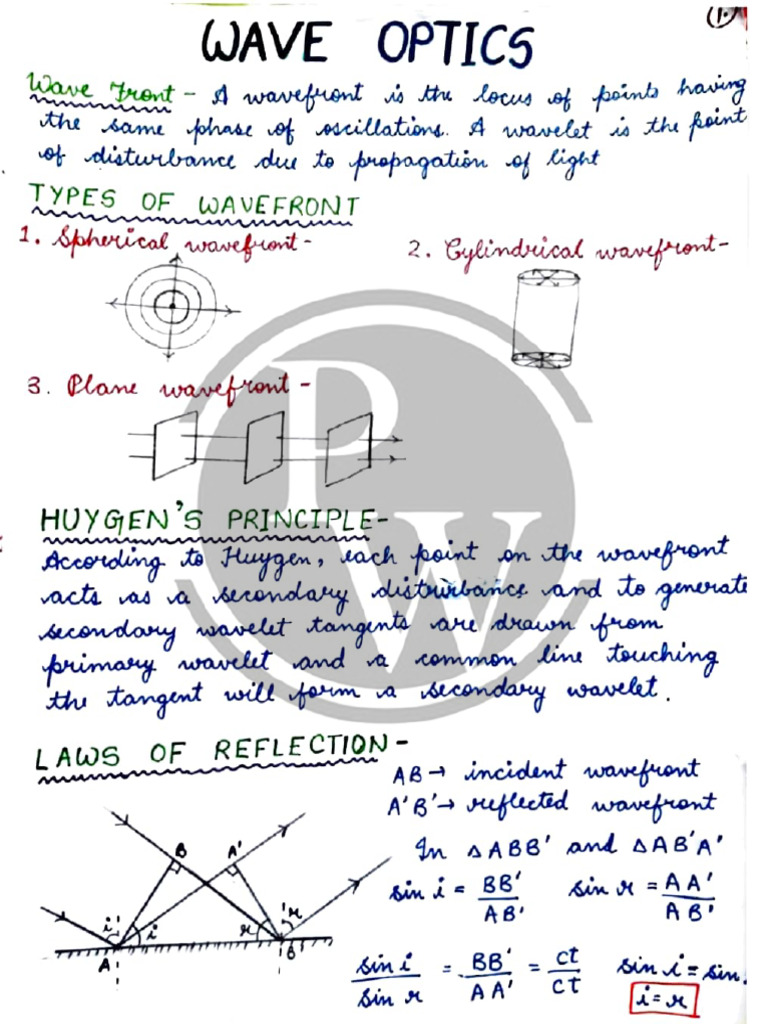 (1.)
WAVE OPTICS
Wave Front - A wavefront is the locus of points having
the same phase of oscillations. A wavelet is the point
of disturbance due to propagation of light
TYPES OF WAVEFRONT
1. Spherical wavefront -
2. Cylindrical wavefront -
3. Plane wavefront -
PW
HUYGEN'S PRINCIPLE -
According to Huygen, each point on the wavefront
acts as a secondary disturbance and to generate
secondary wavelet tangents are drawn from
primary wavelet and a common line touching
the tangent will form a secondary wavelet.
LAWS OF REFLECTION -
AB → incident wavefront
A'B' → reflected wavefront
In △ABB' and △AB'A'
sin i = BB'/AB' sin r = AA'/AB'
sin i/sin r = BB'/AA' = ct/ct sin i = sin
i = r
B A'
i i r r
A B'